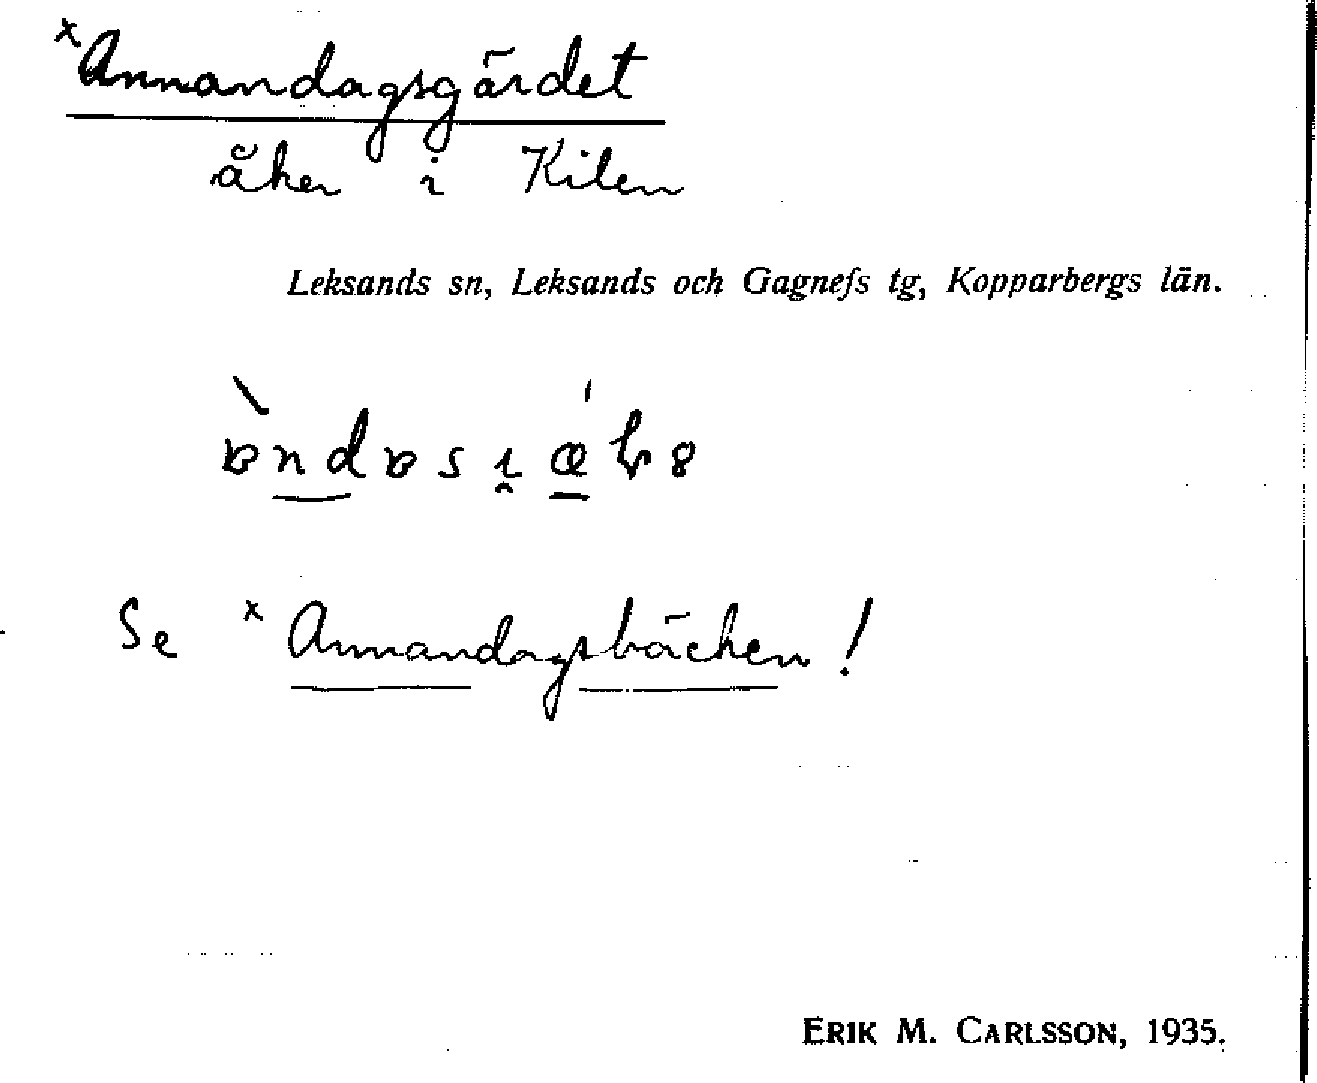 x Annandagsgärdet
åker i Kilen
Leksands sn, Leksands och Gagnefs tg, Kopparbergs län.
Se x Annandagsbäcken!
ERIK M. CARLSSON, 1935.